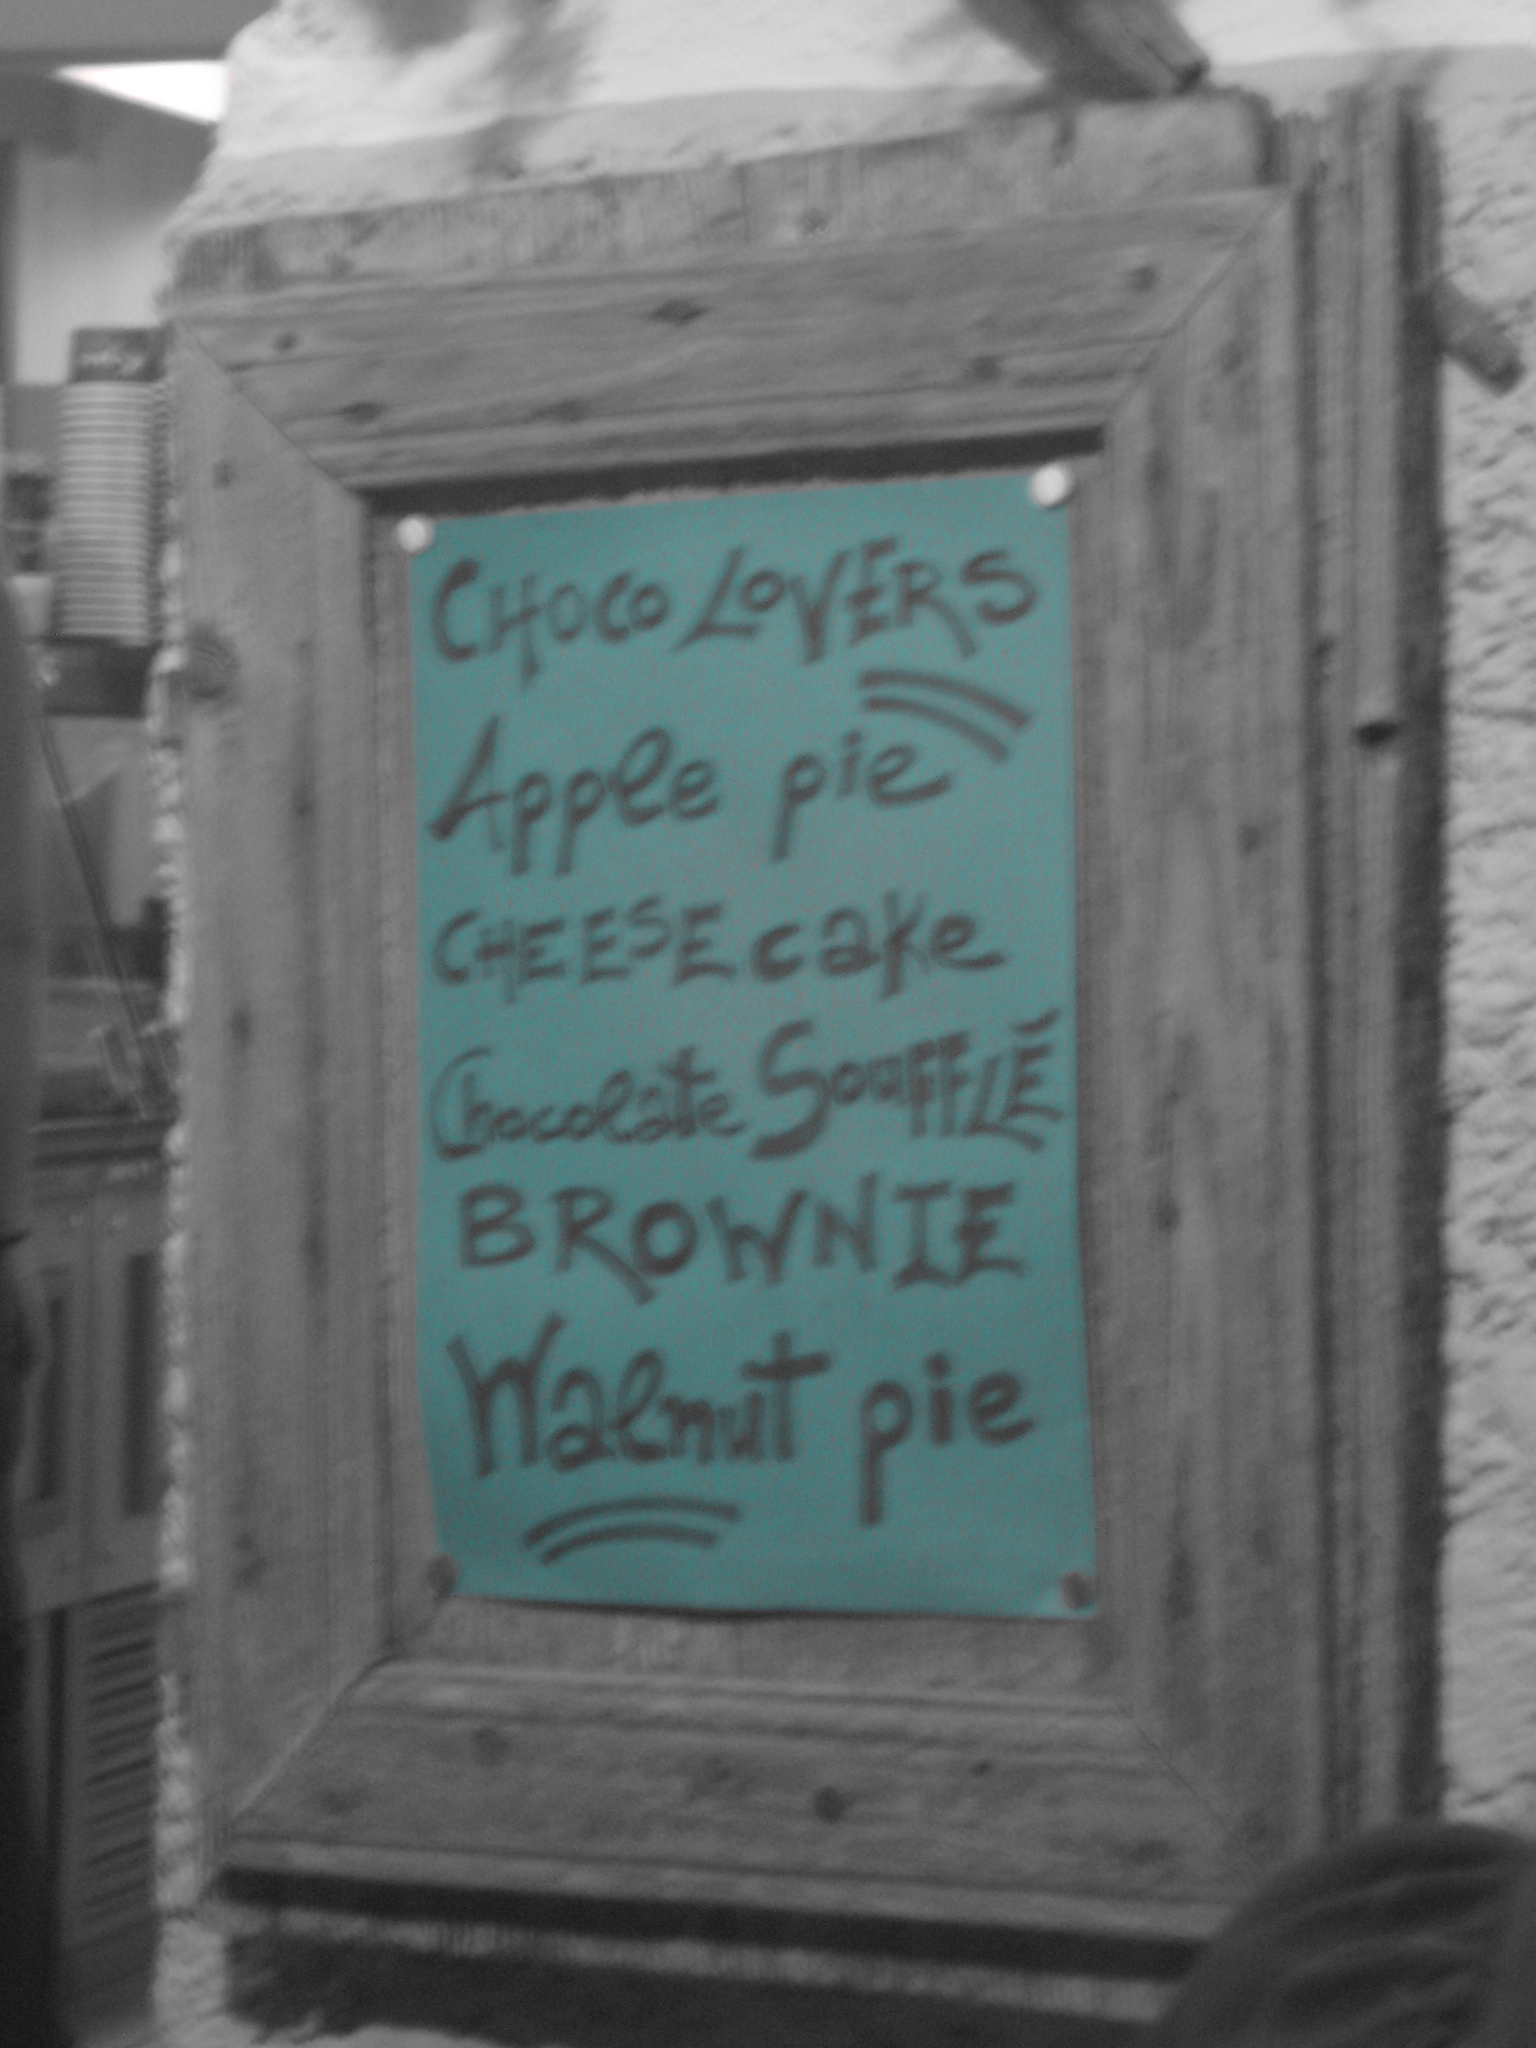 CHOCO LOVERS
Apple pie
CHEESE cake
Chocolate SOUFFLÉ
BROWNIE
Walnut pie